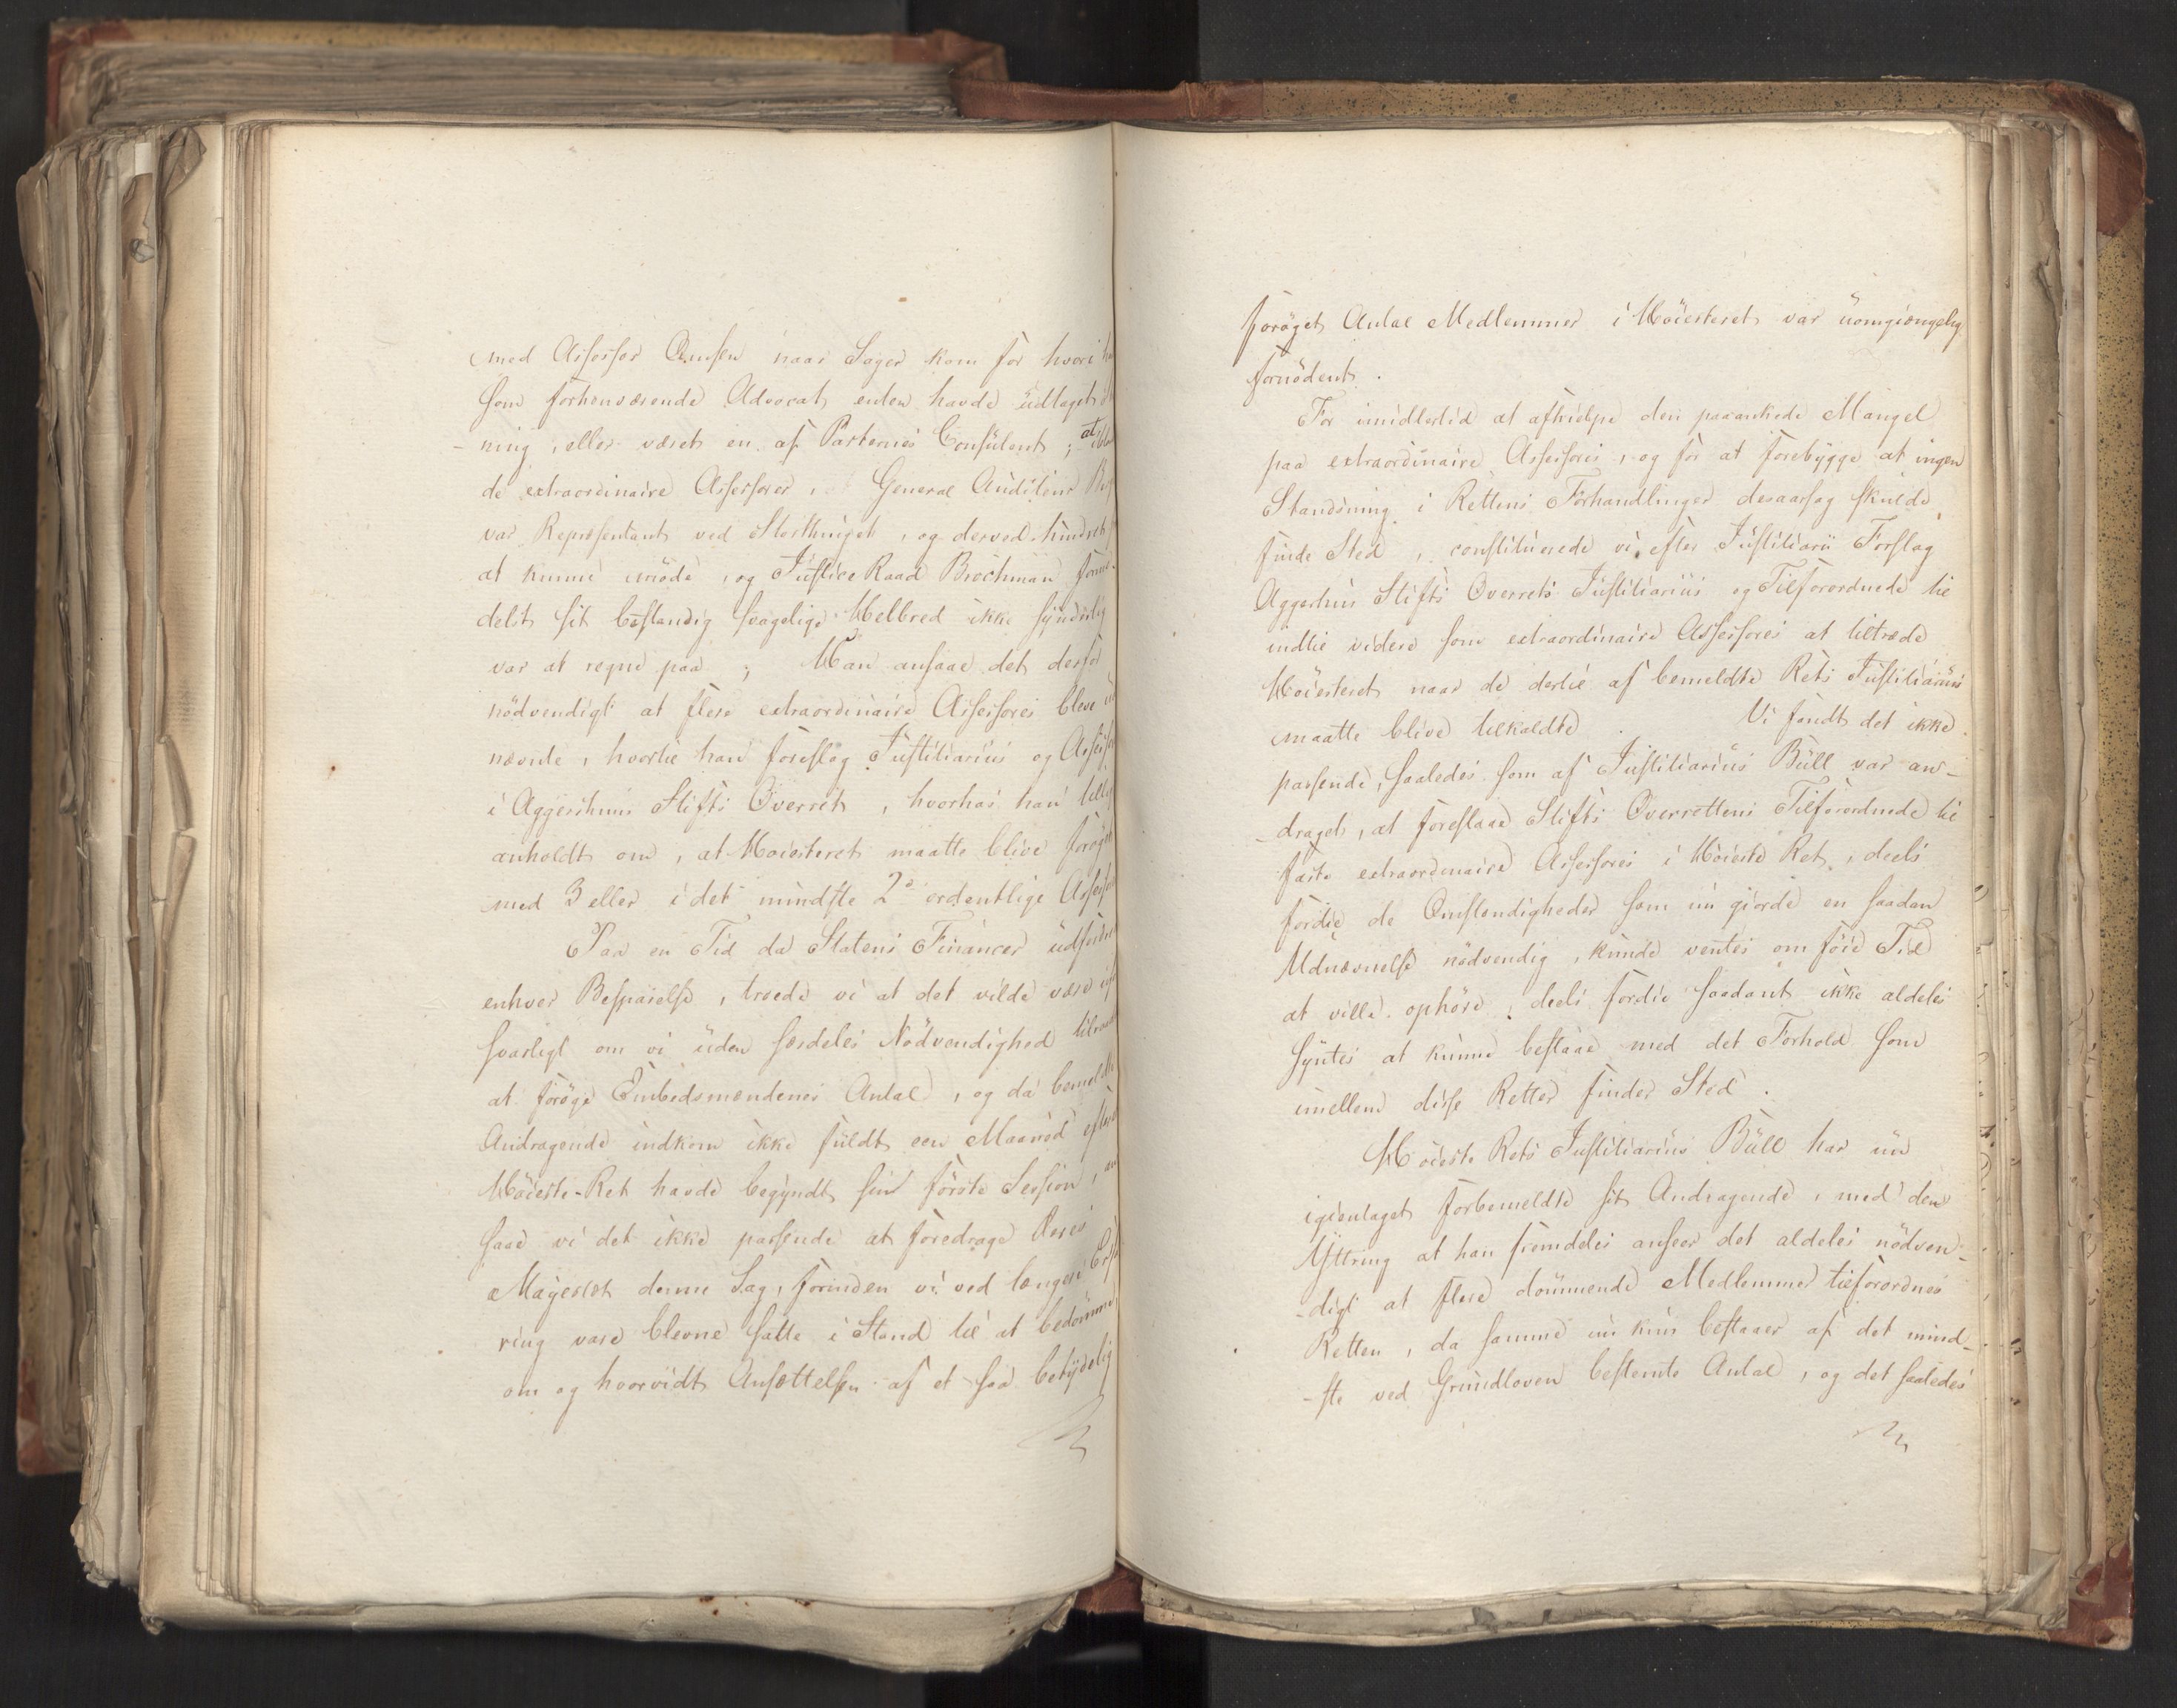 med Assessor Omsen naar Sager kom for hvori
som forhenværende Advocat enten havde udtaget
-ning, eller været en af Parternes Consulent; at
de extraordinaire Assessorer, General Auditeur
var Repræsentant ved Storthinget, og derved hindret
at kunne møde, og Justice Raad Brochman forme-
delst sit bestandig svagelige Helbred ikke synderlig
var at regne paa; Han ansaae det derfor
nödvendigt at flere extraordinaire Assessores bleve ud
nævnte, hvortil han foreslog Justitiarius og
i Aggershuus Stifts Overret, hvorhos han tillige
anholdt om, at Høiesteret maatte blive forøget
med 3 eller i det mindste 2de ordentlige
Paa en Tid da Statens Financer udfordre
enhver Besparelse, troede vi at det vilde være
svarligt om vi uden særdeles Nödvendighed tilraade
at forøge Embedsmændenes Antal, og da bemeldte
Andragende indkom ikke fuldt een Maaned efterat
Höieste-Ret havde begyndt sin förste Session, an
saae vi det ikke passende at foredrage Deres
Majestæt denne Sag, forinden vi ved længere
ring vare blevne satte i Stand til at bedömme
om og hvorvidt Ansættelsen af et saa betydelig
foröget Antal Medlemmer i Höiesteret var uomgiængelig
fornödent.
For imidlertid at afhielpe den paaankede Mangel
paa extraordinaire Assessores, og for at forebygge at ingen
Standsning i Rettens Forhandlinger desaarsag skulde
finde Sted, constituerede vi efter Justitiarii Forslag
Aggerhuus Stifts Overrets Justitiarius og Tilforordnede til
indtil videre som extraordinaire Assessores at tiltræde
Höiesteret naar de dertil af bemeldte Rets Justitiarius
maatte blive tilkaldte. Vi fandt det ikke
passende, saaledes som af Justitiarius Bull var an-
-draget, at foreslaae Stifts Overrettens Tilforordnede til
faste extraordinaire Assessores i Höieste Ret, deels
fordie de Omstændigheder som nu giorde en saadan
Udnævnelse nödvendig, kunde ventes om föie Tid
at ville ophöre, deels fordie saadant ikke aldeles
syntes at kunne bestaae med det Forhold som
imellem disse Retter finder Sted.
Höieste Rets Justitiarius Bull har nu
igientaget forbemeldte sit Andragende, med den
Yttring at han fremdeles anseer det aldeles nödven-
-digt at flere dömmende Medlemmer tilforordnes
Retten, da samme nu kun bestaaer af det mind-
-ste ved Grundloven bestemte Antal, og det saaledes